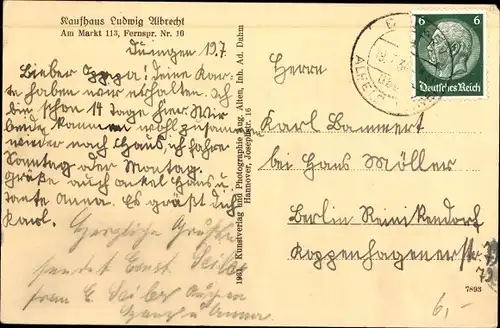 Kaufhaus Ludwig Albrecht
Am Markt 113, Fernspr. Nr. 10
Duingen 19.7
Lieber Oppa! deine Kar-
te haben wir erhalten. Ich
bin schon 14 Tage hier. Wir
beide kommen wohl zusammen
wieder nach Haus, ich fahre
Sonntag oder Montag.
Grüße auch onkel Hans u.
tante Anna. Es grüßt dich
Karl.
Herzliche Grüße
sendet Ernst Seiler
frau E Seiler
Hans u Anna.
Kunstverlag und Photographie Aug. Alten, Inh. Ad. Dahm
Hannover, Josephstr. 16
6 6
Deutsches Reich
Herrn
Karl Bammert
bei Hans Möller
Berlin Reinikendorf
Koppenhagenerstr
79
7893
6,-